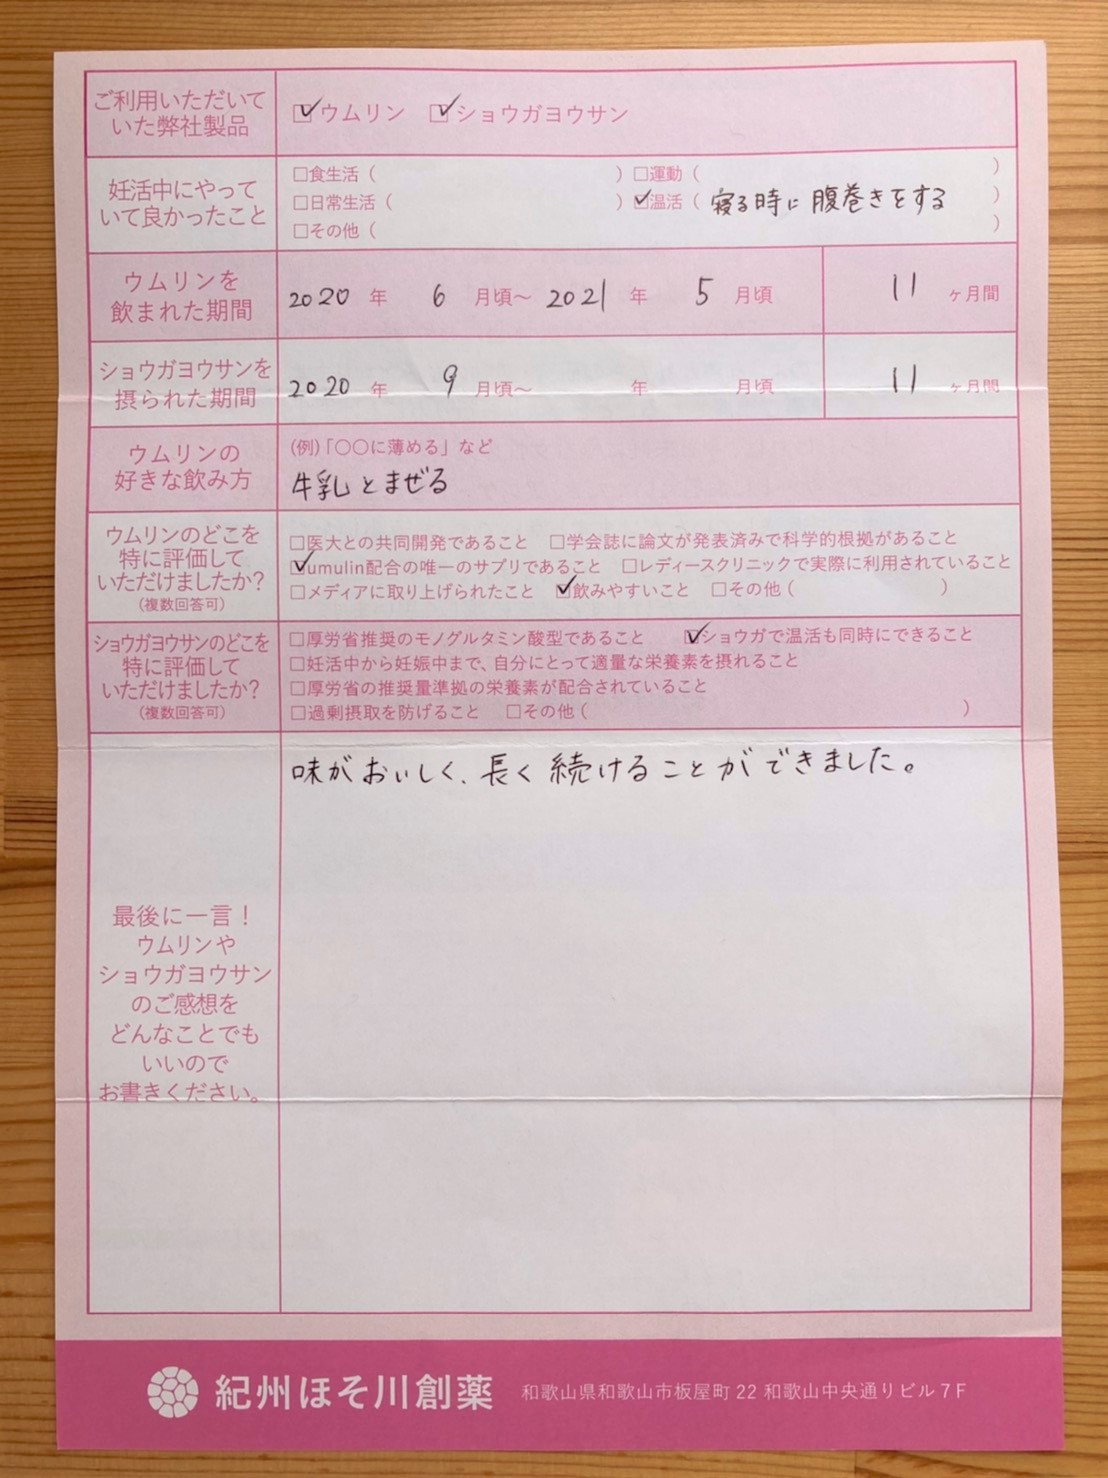 ご利用いただいて
いた弊社製品
☑ウムリン ☑ショウガヨウサン
妊活中にやって
いて良かったこと
□食生活（ ）□運動（ ）
□日常生活（ ）☑温活（ 寝る時に腹巻きをする ）
□その他（ ）
ウムリンを
飲まれた期間
2020 年 6 月頃～ 2021 年 5 月頃 11 ヶ月間
ショウガヨウサンを
摂られた期間
2020 年 9 月頃～ 年 月頃 11 ヶ月間
ウムリンの
好きな飲み方
(例)「〇〇に薄める」など
牛乳とまぜる
ウムリンのどこを
特に評価して
いただけましたか?
(複数回答可)
□医大との共同開発であること □学会誌に論文が発表済みで科学的根拠があること
☑umulin配合の唯一のサプリであること □レディースクリニックで実際に利用されていること
□メディアに取り上げられたこと ☑飲みやすいこと □その他（ ）
ショウガヨウサンのどこを
特に評価して
いただけましたか?
(複数回答可)
□厚労省推奨のモノグルタミン酸型であること ☑ショウガで温活も同時にできること
□妊活中から妊娠中まで、自分にとって適量な栄養素を摂れること
□厚労省の推奨量準拠の栄養素が配合されていること
□過剰摂取を防げること □その他（ ）
味がおいしく、長く続けることができました。
最後に一言！
ウムリンや
ショウガヨウサン
のご感想を
どんなことでも
いいので
お書きください。
紀州ほそ川創薬 和歌山県和歌山市板屋町 22 和歌山中央通りビル 7 F